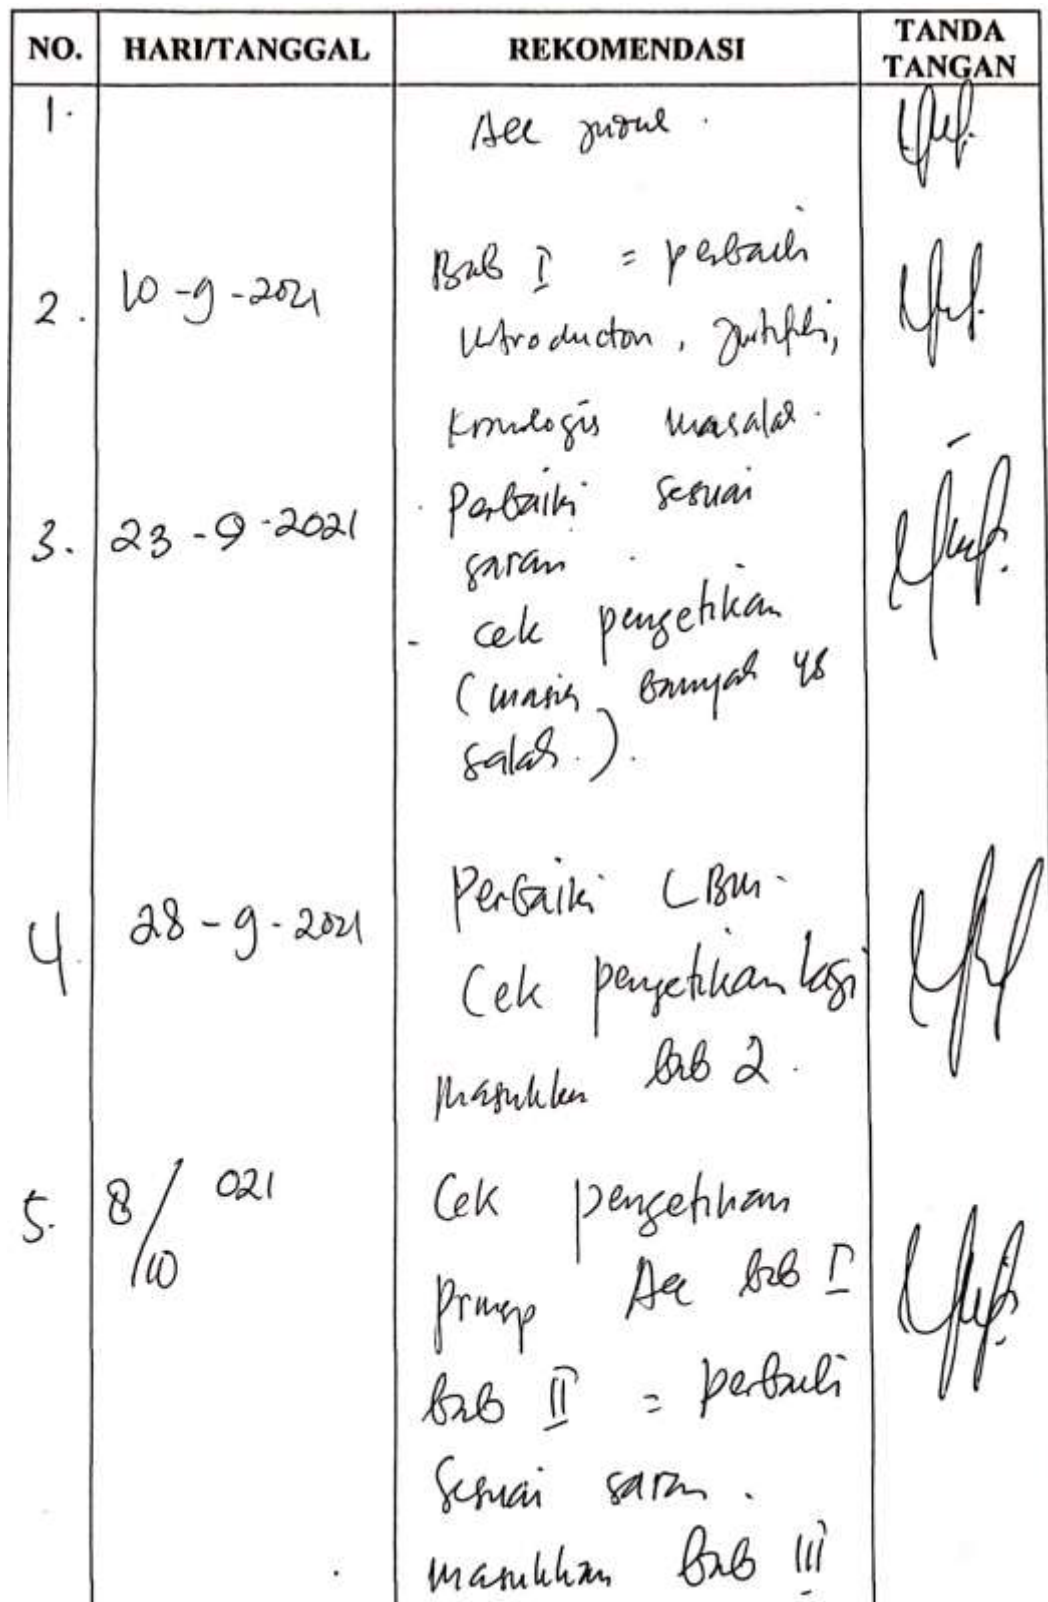 NO. HARI/TANGGAL REKOMENDASI TANDA TANGAN
1. Acc judul.
2. 10-9-2021 Bab I = perbaiki
introduction, justifikasi,
kronologis masalah.
3. 23-9-2021 Perbaiki sesuai
saran
- cek pengetikan
(masih banyak yg
salah.).
4. 28-9-2021 Perbaiki LBM.
Cek pengetikan lagi
masukkan bab 2.
5. 8/10 021 Cek pengetikan
prinsip Acc bab I
bab II = perbaiki
sesuai saran.
masukkan bab III